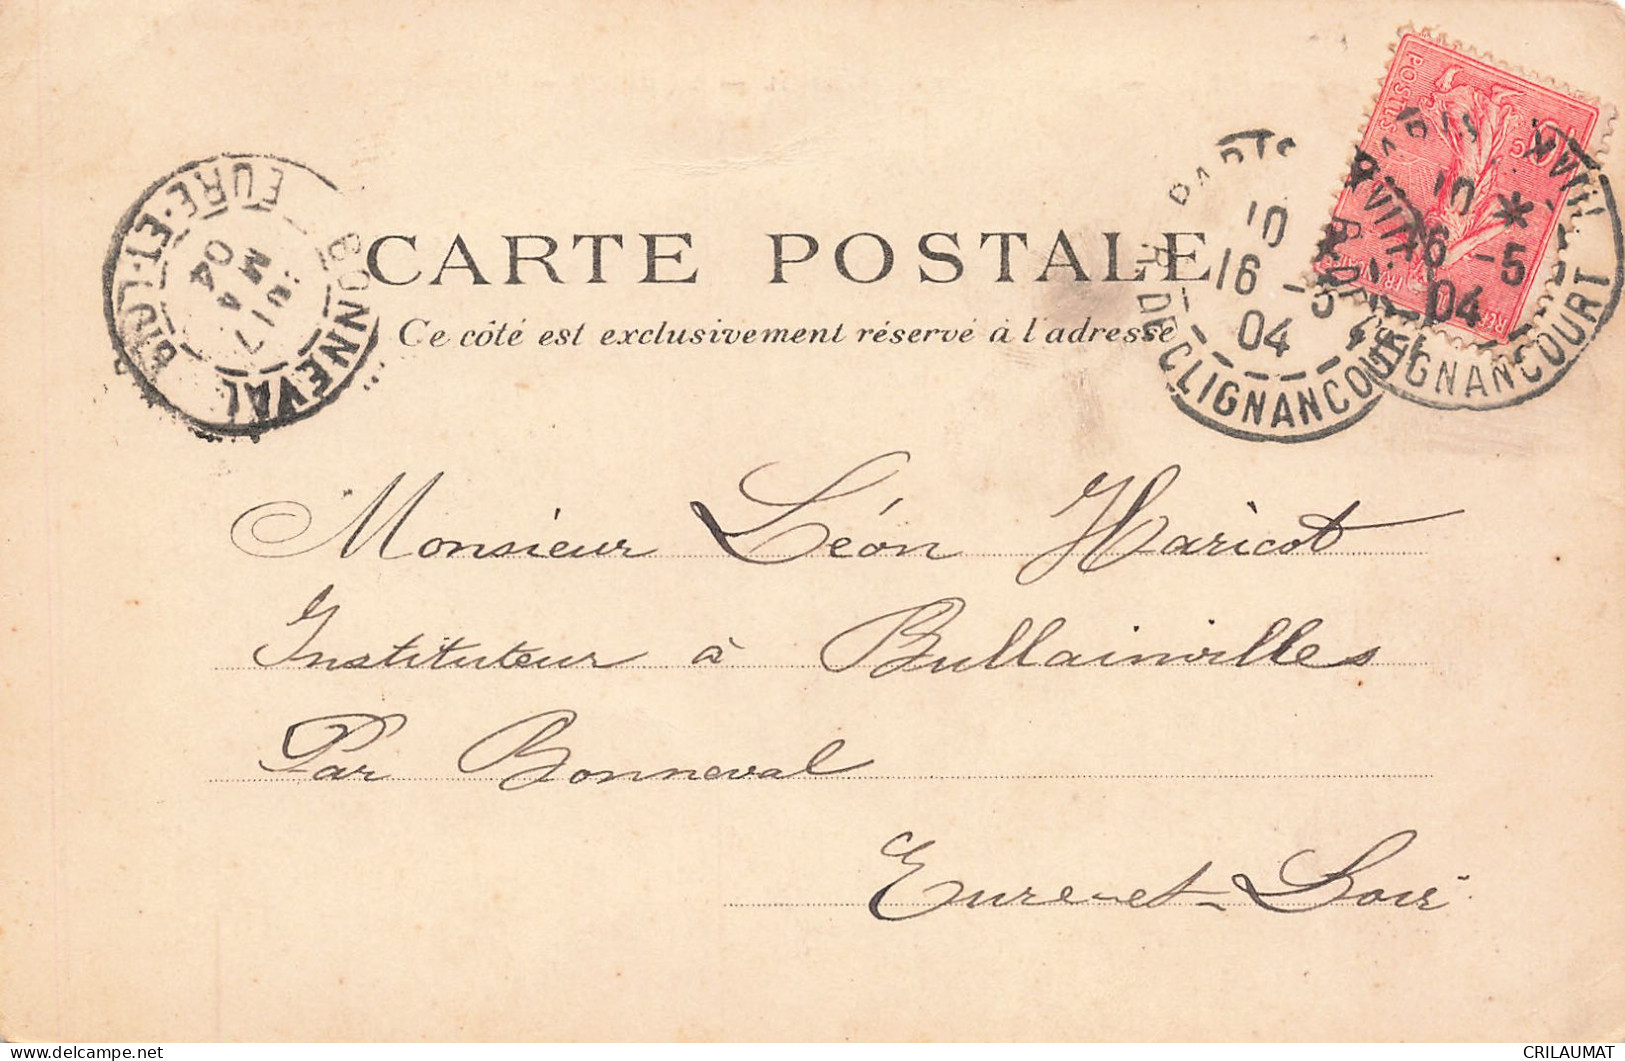 CARTE POSTALE
Ce côté est exclusivement réservé à l'adresse
BONNEVAL
EURE-ET-LOIR
04
PARIS
R. DE CLIGNANCOURT
10
16 -5
04
PARIS XVIII
CLIGNANCOURT
10 *
16 -5
04
POSTES
Monsieur Léon Haricot
Instituteur à Bullainvilles
Par Bonneval
Eure-et-Loir
CRILAUMAT